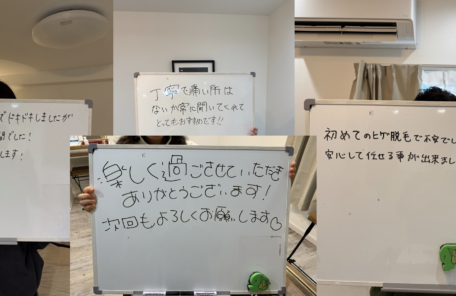 ドキドキしましたが
した!
します!
丁寧で痛い所は
ないか常に聞いてくれて
とってもおすすめです!!
楽しく過ごさせていただき
ありがとうございます!
次回もよろしくお願いします
初めてのヒゲ脱毛で不安でし
安心して任せる事が出来まし